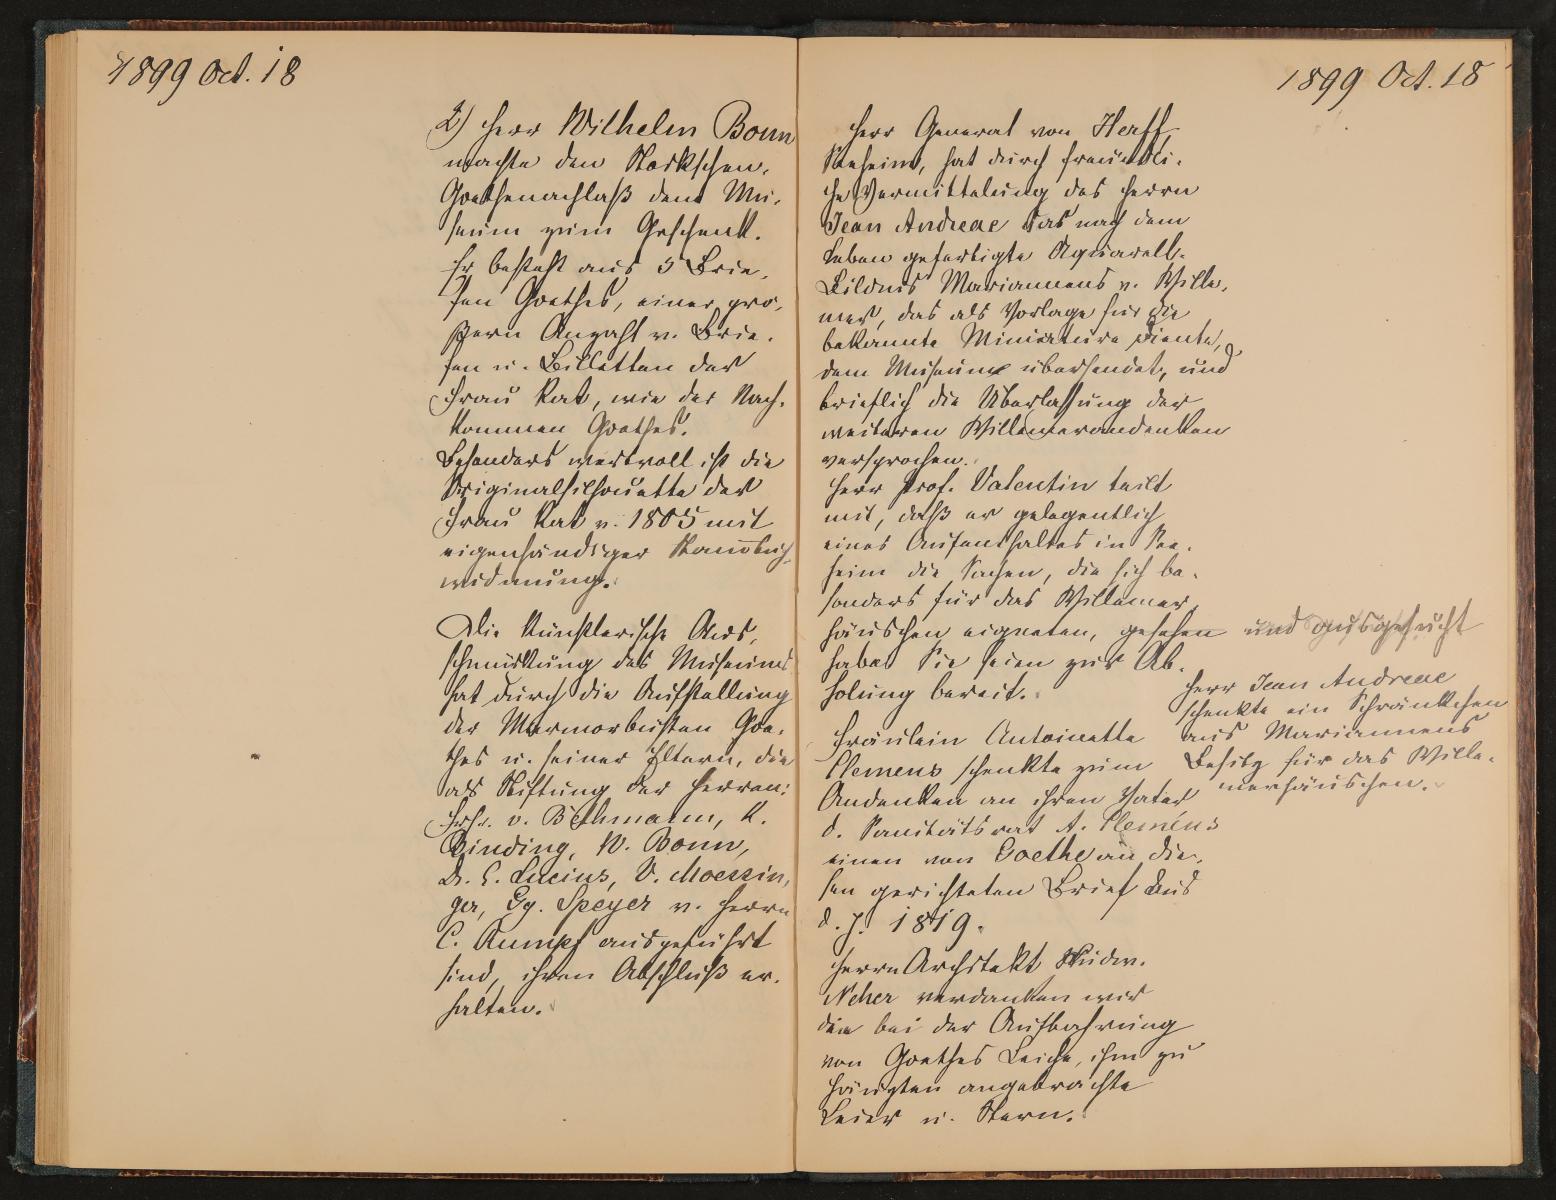 1899 Oct. 18
2) Herr Wilhelm Bonn
machte den Stockschen
Goethenachlaß dem Mu-
seum zum Geschenk.
Er besteht aus 5 Brie-
fen Goethes, einer grö-
ßern Anzahl v. Brie-
fen u. Billetten der
Frau Rat, wie der Nach-
kommen Goethes.
Besonders wertvoll ist die
Originalsilhouette der
Frau Rat v. 1805 mit
eigenhändiger Stammbuch-
widmung.
Die künstlerische Aus-
schmückung des Museums
hat durch die Aufstellung
der Marmorbüsten Goe-
thes u. seiner Eltern, die
als Stiftung der Herren:
Frhr. v. Bethmann, K.
Binding, W. Bonn,
Dr. E. Lucius, V. Moessin-
ger, Gg. Speyer v. Herrn
C. Rumpf ausgeführt
sind, ihren Abschluß er-
halten.
1899 Oct. 18
Herr General von Herff,
Seeheim, hat durch freundli-
che Vermittelung des Herrn
Jean Andreae das nach dem
Leben gefertigte Aquarell-
Bildnis Mariannens v. Wille-
mer, das als Vorlage für die
bekannte Miniature diente,
dem Museum übersendet, und
brieflich die Überlassung der
weiteren Willemerandenken
versprochen.
Herr Prof. Valentin teilt
mit, daß er gelegentlich
eines Aufenthaltes in See-
heim die Sachen, die sich be-
sonders für das Willemer-
häuschen eigneten, gesehen und ausgesucht
habe. Sie seien zur Ab-
holung bereit.
Herr Jean Andreae
schenkte ein Schränkchen
aus Mariannens
Besitz für das Wille-
merhäuschen.
Fräulein Antoinette
Clemens schenkte zum
Andenken an ihren Vater
d. Sanitätsrat A. Clemens
einen von Goethe an die-
sen gerichteten Brief aus
d. J. 1819.
Herrn Architekt Ludw.
Neher verdanken wir
die bei der Aufbahrung
von Goethes Leiche, ihm zu
Häupten angebrachte
Leier u. Stern.